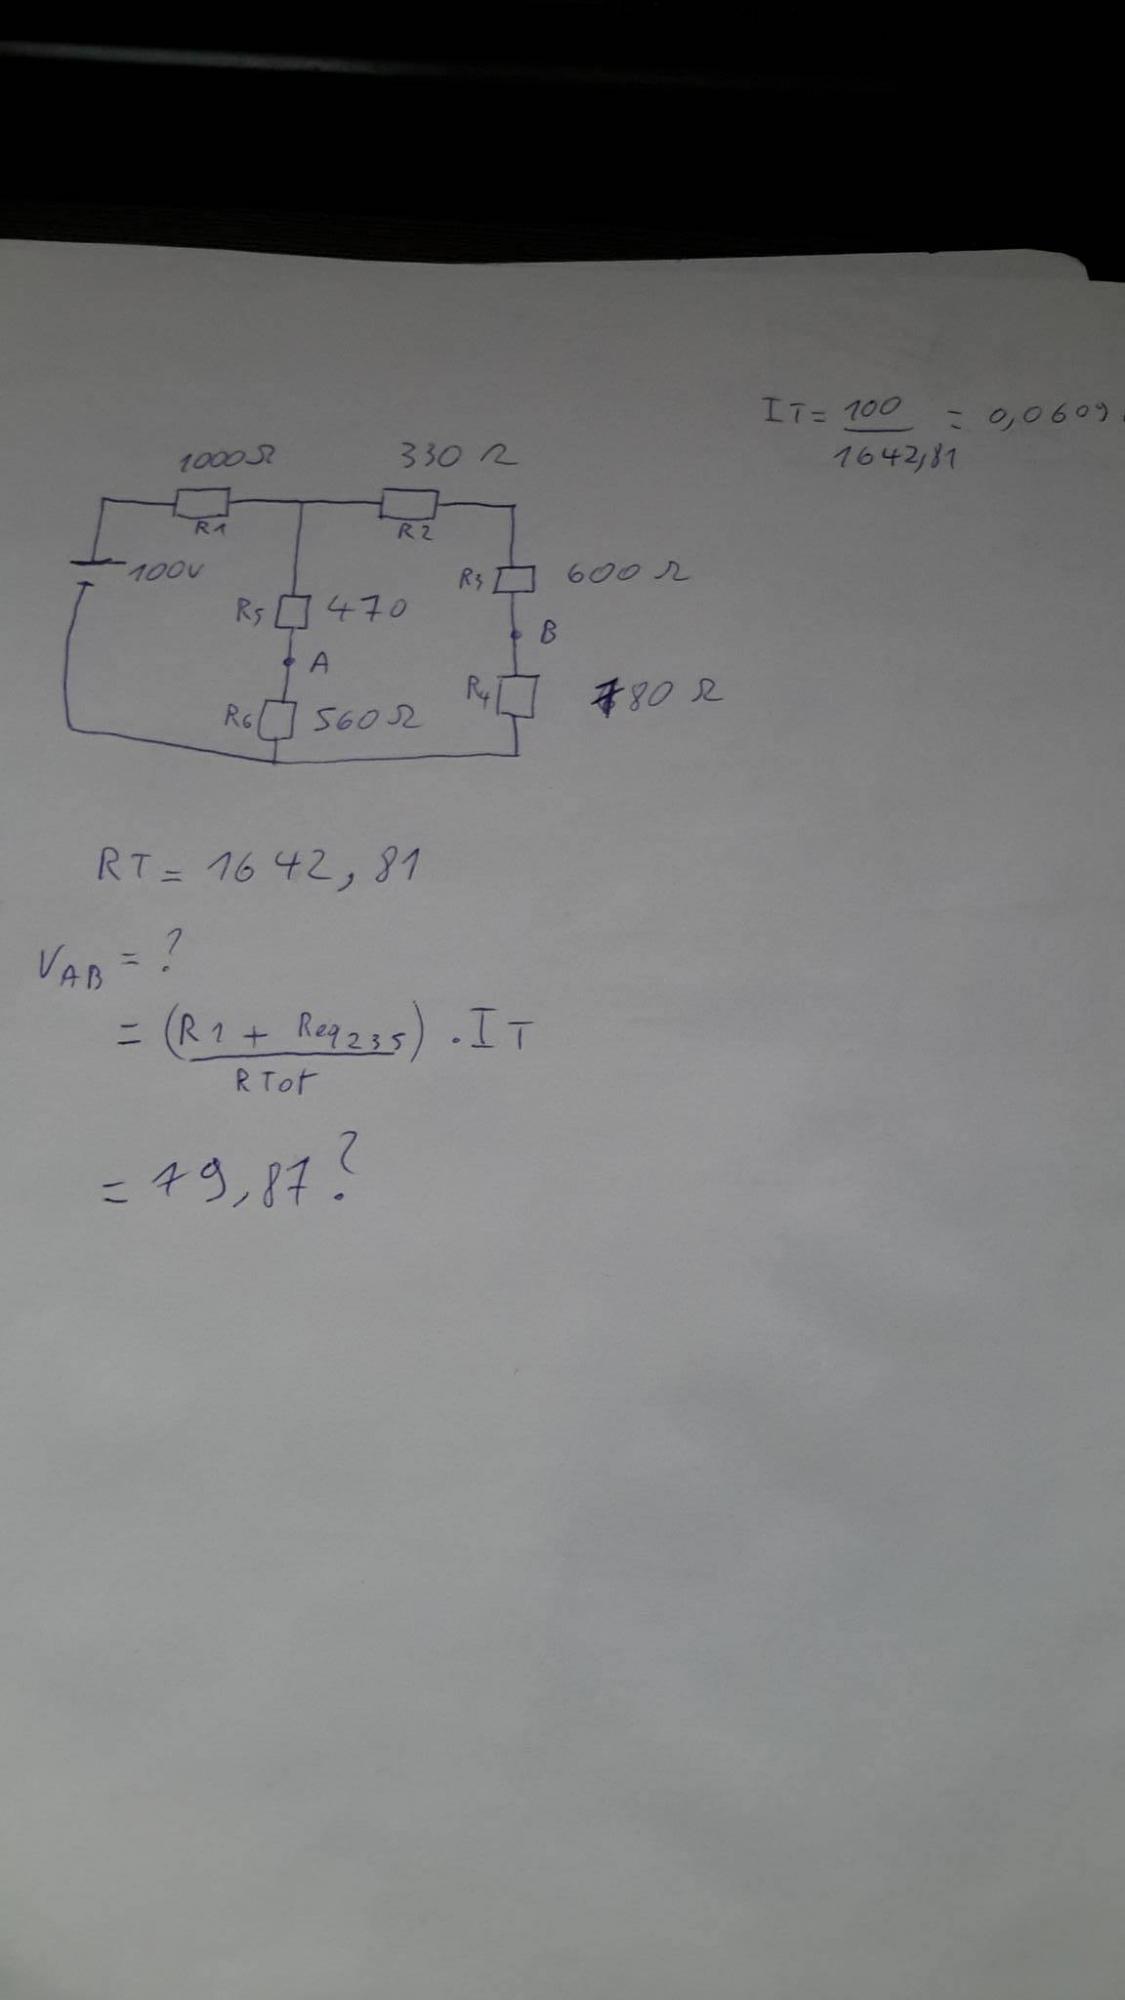 IT = 100 / 1642,81 = 0,0609
1000Ω
330 Ω
R1
R2
100V
R3 600 Ω
R5 470
B
A
R4 780 Ω
R6 560Ω
RT = 1642,81
VAB = ?
= (R1 + Req235 / RTot) . IT
= 79,87?